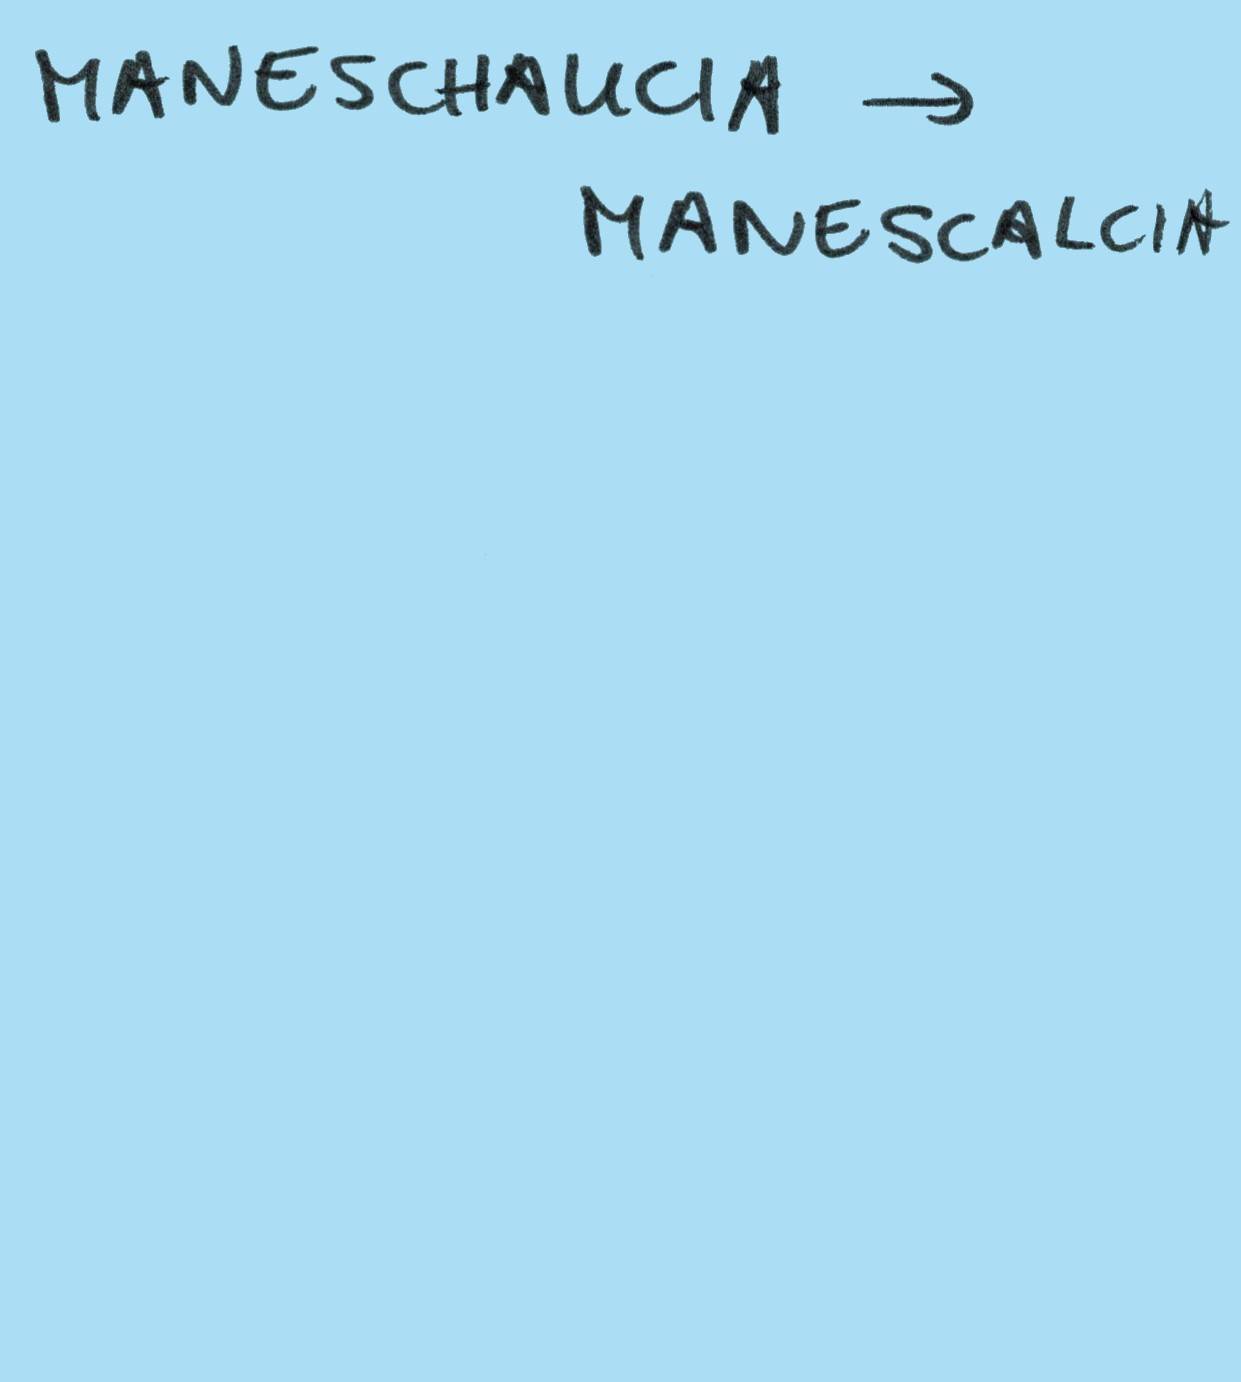 MANESCHAUCIA →
MANESCALCIA